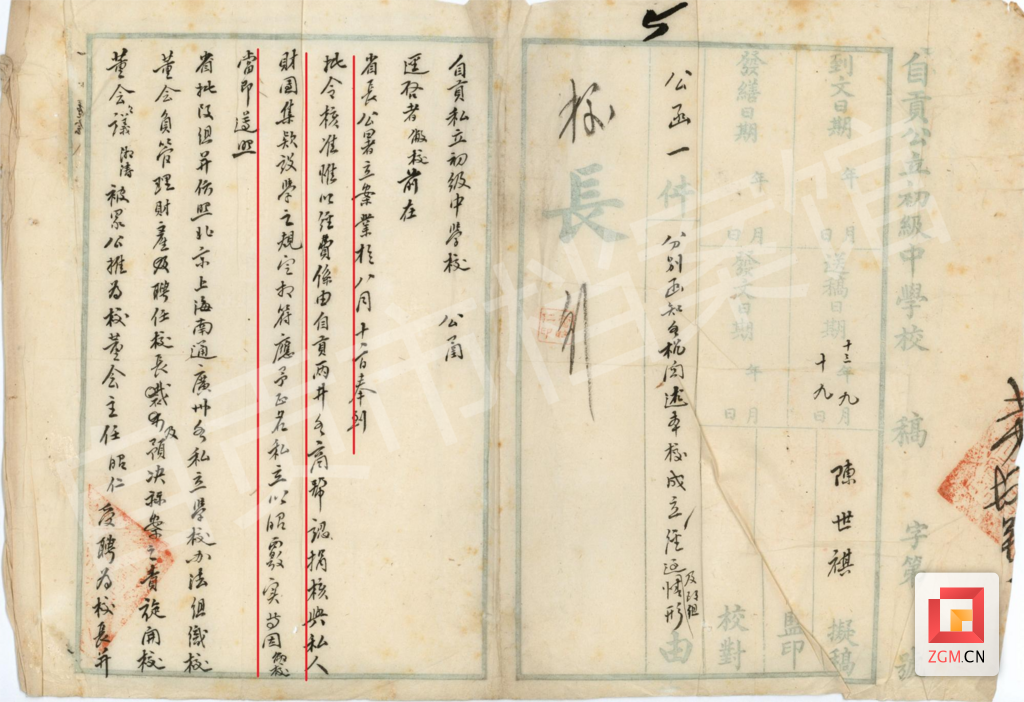 自貢公立初級中學校　稿　字第　號
到文日期　年　月　日　送稿日期　十三年九月十九日　陳世祺　擬稿
發繕日期　年　月　日　發文日期　年　月　日　監印　校對
公函一件　分别函知各机関述本校成立經過及改組情形　由
校長
自貢私立初級中學校　公函
逕啓者做校前在
省長公署立案業於八月十二日奉到
批令核准惟以經費係由自貢两井各商號認捐核與私人
財团集欵設學之規定相符應予正名私立以昭覈實等因
當即遵照
省批改組并仿照北京上海南通廣州各私立學校办法組織校
董会負管理財產及聘任校長裁可及預决算案之責旋開校
董会議被眾公推為校董会主任昭仁受聘為校長并
ZGM.CN